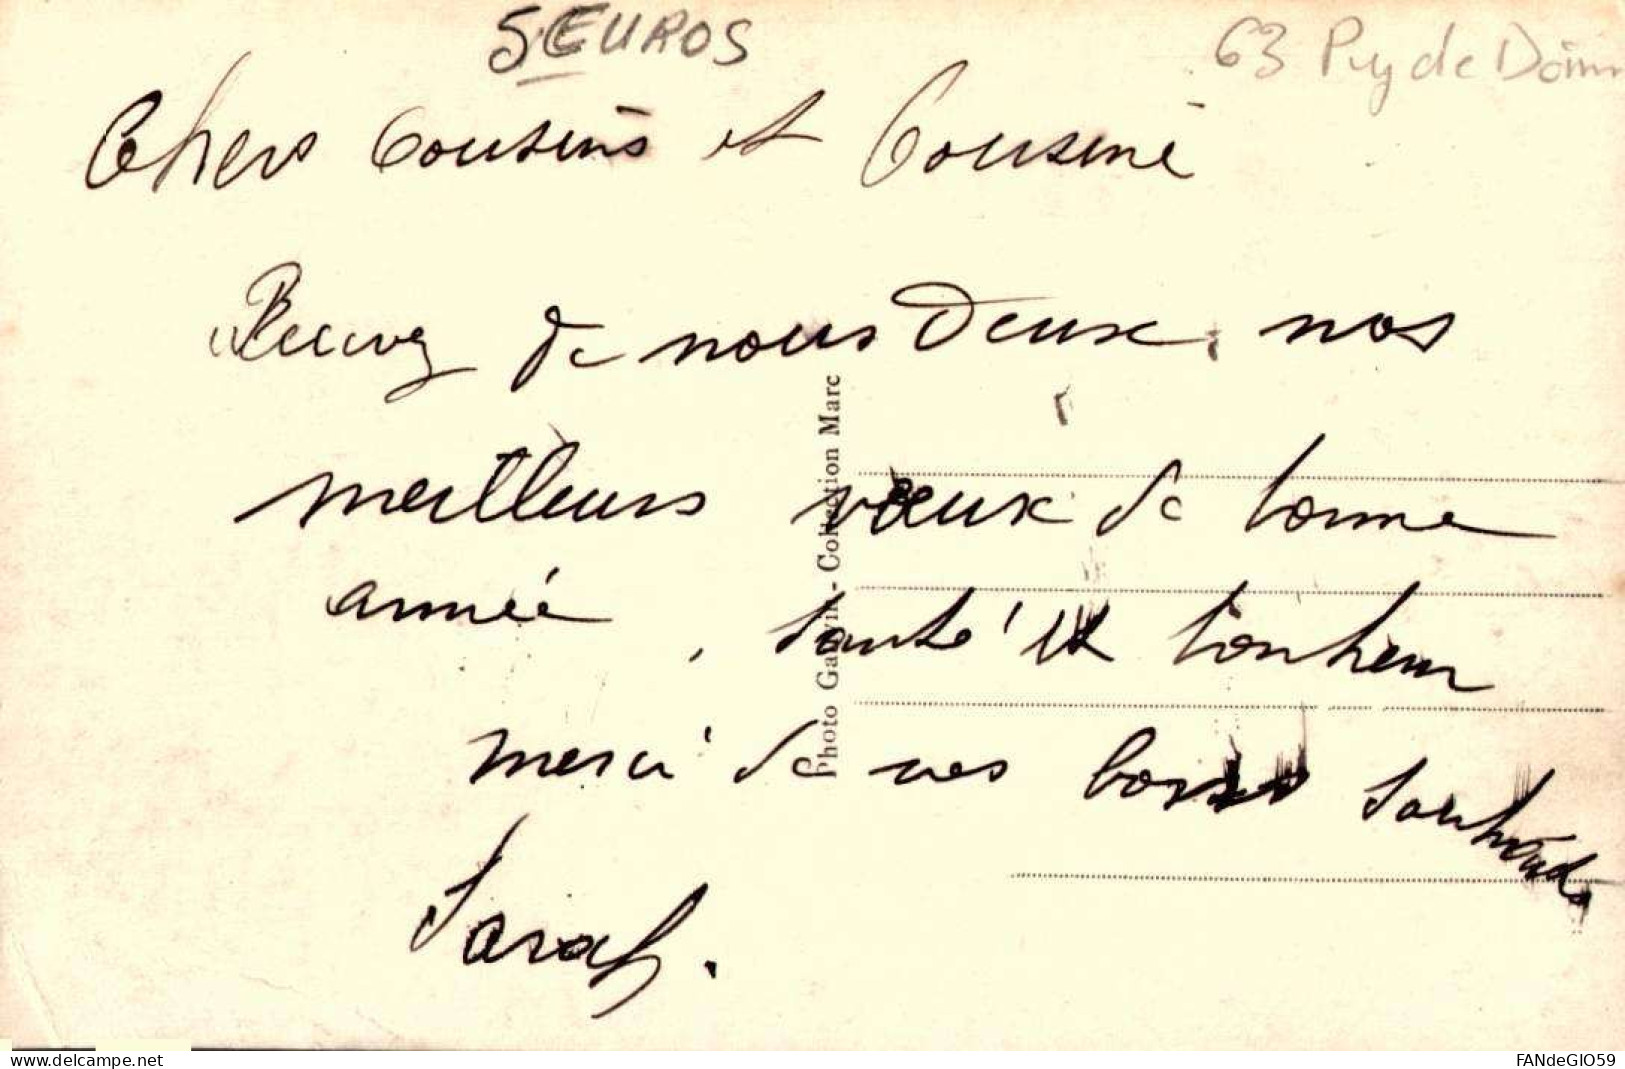 5 EUROS
63 Puy de Dôm
Chers Cousins et Cousine
Recevez de nous Deux, nos
meilleurs vœux de bonne
année, santé et bonheur
merci de vos bons souhaits
Sarah.
Photo - Collection Marc
www.delcampe.net
FANdeGIO59